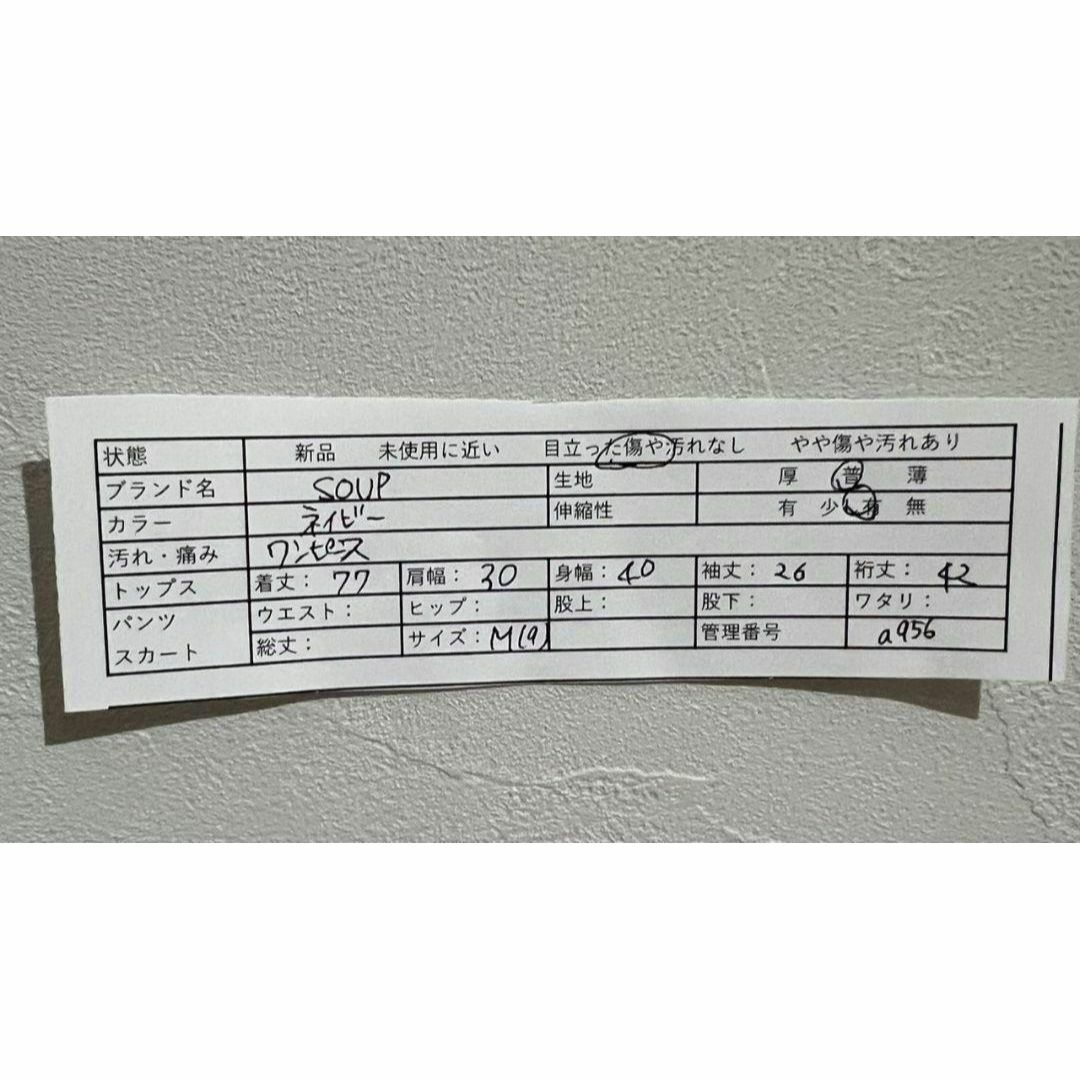 状態 新品 未使用に近い 目立った傷や汚れなし やや傷や汚れあり
ブランド名 SOUP 生地 厚 普 薄
カラー ネイビー 伸縮性 有 少し有 無
汚れ・痛み ワンピース
トップス 着丈: 77 肩幅: 30 身幅: 40 袖丈: 26 裄丈: 42
パンツ ウエスト: ヒップ: 股上: 股下: ワタリ:
スカート 総丈: サイズ: M(9) 管理番号 a956